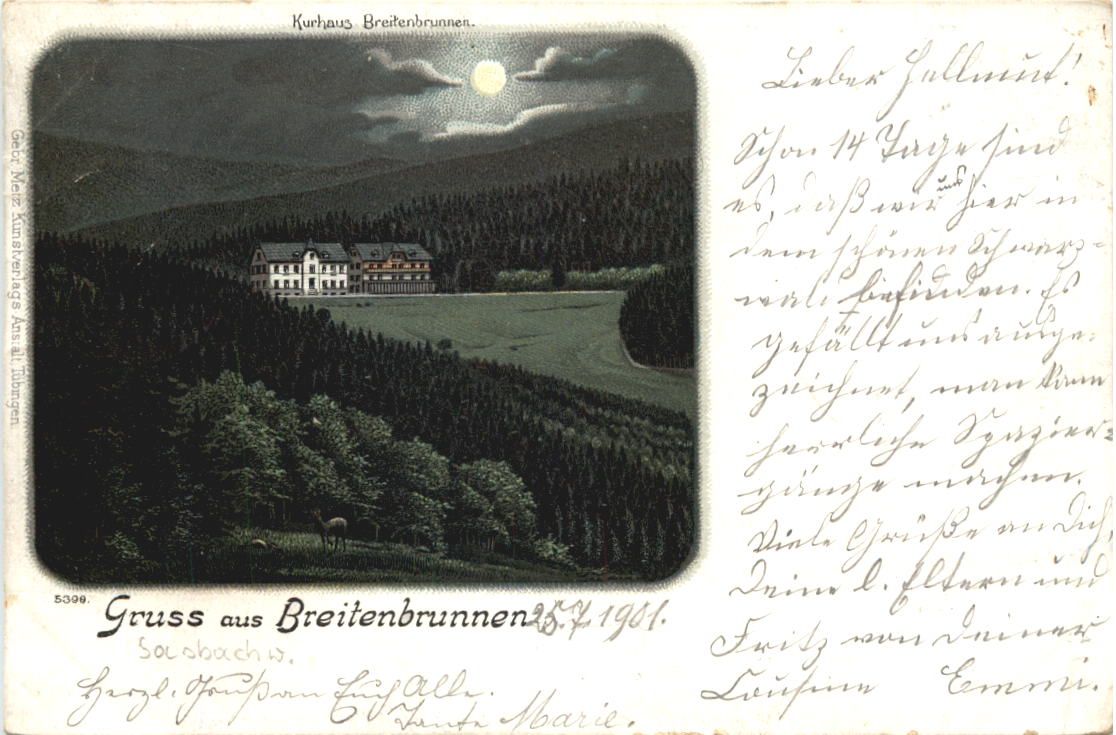 Kurhaus Breitenbrunnen.
Gebr. Metz Kunstverlags Anstalt Tübingen
5398.
Gruss aus Breitenbrunnen 25.7.1901.
Sasbachw.
Herzl. Gruß an Euch Alle.
Tante Marie.
Lieber Hellmut!
Schon 14 Tage sind
es, daß wir uns hier in
dem schönen Schwarz-
wald befinden. Es
gefällt uns ausge-
zeichnet, man kann
herrliche Spazier-
gänge machen.
Viele Grüße an Dich,
Deine l. Eltern und
Fritz von Deiner
Cousine Emmi.